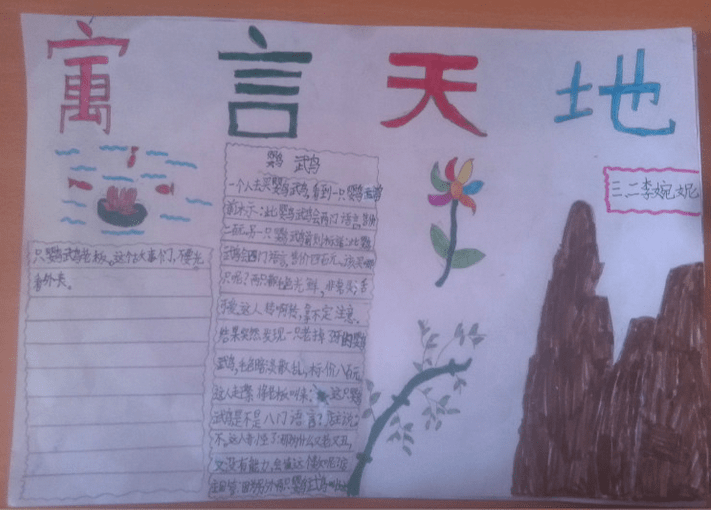 寓言天地
三二李婉妮
鹦鹉
一个人去买鹦鹉,看到一只鹦鹉
前标示:此鹦鹉会两门语言,售价
二百元。另一只鹦鹉前则标道:此鹦
鹉会四门语言,售价四百元。该买哪
只呢?两只都毛色光鲜,非常灵活
可爱。这人转啊转,拿不定注意。
结果突然发现一只老掉牙的鹦
鹉,毛色暗淡散乱,标价八百元。
这人赶紧将老板叫来:这只鹦
鹉是不是八门语言?店主说:
不,这人奇怪了:那为什么又老又丑,
又没有能力,会值这个数呢?店
主回答:因为另外两只鹦鹉叫这
只鹦鹉老板。这个故事告诉我们,不要光
看外表。